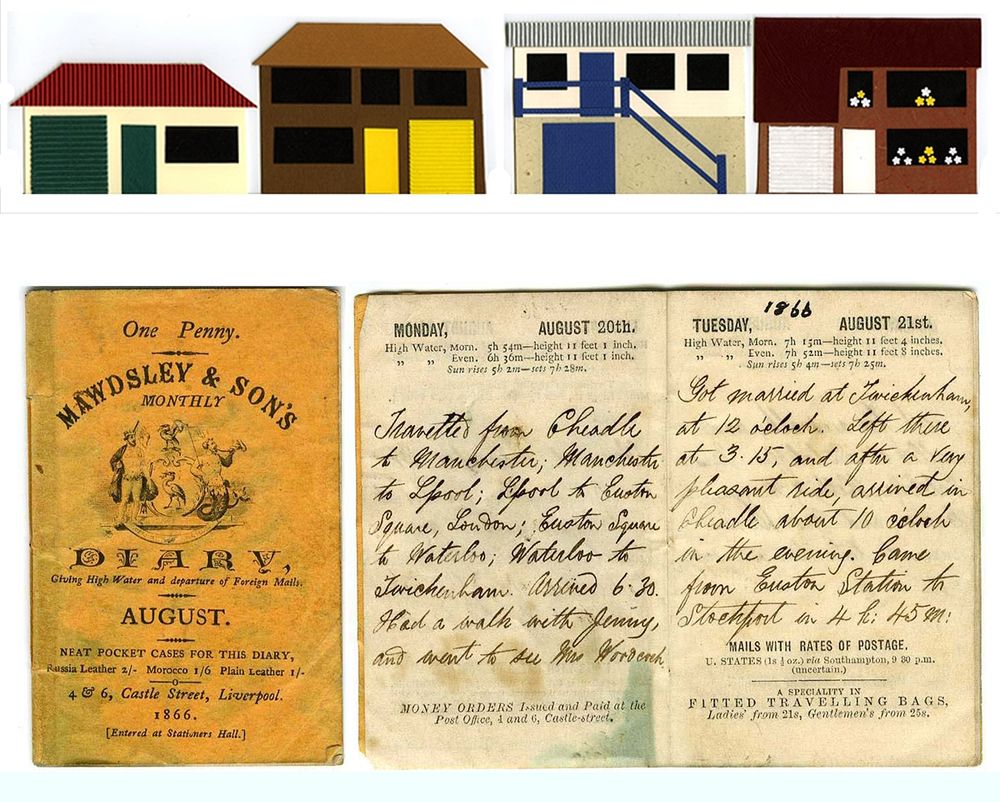 One Penny.
MAWDSLEY & SON'S
MONTHLY
DIARY,
Giving High Water and departure of Foreign Mails.
AUGUST.
NEAT POCKET CASES FOR THIS DIARY,
Russia Leather 2/- Morocco 1/6 Plain Leather 1/-
4 & 6, Castle Street, Liverpool.
1866.
[Entered at Stationers Hall.]
MONDAY, AUGUST 20th.
High Water, Morn. 5h 54m—height 11 feet 1 inch.
„ „ Even. 6h 36m—height 11 feet 1 inch.
Sun rises 5h 2m—sets 7h 28m.
Travelled from Cheadle
to Manchester; Manchester
to Lpool; Lpool to Euston
Square, London; Euston Square
to Waterloo; Waterloo to
Twickenham. Arrived 6.30.
Had a walk with Jenny,
and went to see Mrs Woodcock.
MONEY ORDERS Issued and Paid at the
Post Office, 4 and 6, Castle-street.
1866
TUESDAY, AUGUST 21st.
High Water, Morn. 7h 15m—height 11 feet 4 inches.
„ „ Even. 7h 52m—height 11 feet 8 inches.
Sun rises 5h 4m—sets 7h 25m.
Got married at Twickenham,
at 12 o'clock. Left there
at 3.15, and after a very
pleasant ride, arrived in
Cheadle about 10 o'clock
in the evening. Came
from Euston Station to
Stockport in 4 h: 45 m:
MAILS WITH RATES OF POSTAGE.
U. STATES (1s ½ oz.) via Southampton, 9 30 p.m.
(uncertain.)
A SPECIALITY IN
FITTED TRAVELLING BAGS,
Ladies' from 21s, Gentlemen's from 25s.